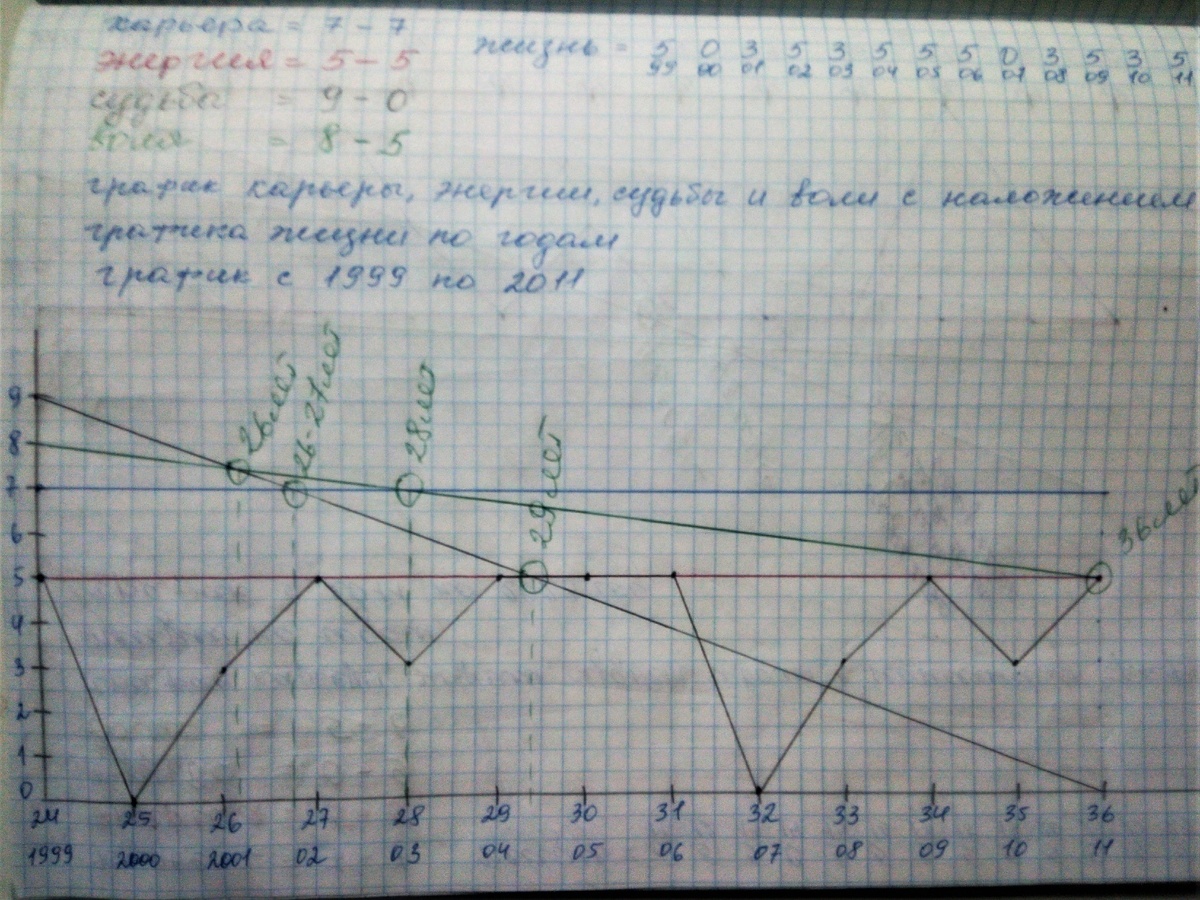 карьера = 7 - 7
энергия = 5 - 5
судьбы = 9 - 0
воля = 8 - 5
жизнь = 5 0 3 5 3 5 5 5 0 3 5 3 5
99 00 01 02 03 04 05 06 07 08 09 10 11
график карьеры, энергии, судьбы и воли с наложением
графика жизни по годам
график с 1999 по 2011
26 лет
26-27 лет
28 лет
29 лет
36 лет
9
8
7
6
5
4
3
2
1
0
24 25 26 27 28 29 30 31 32 33 34 35 36
1999 2000 2001 02 03 04 05 06 07 08 09 10 11